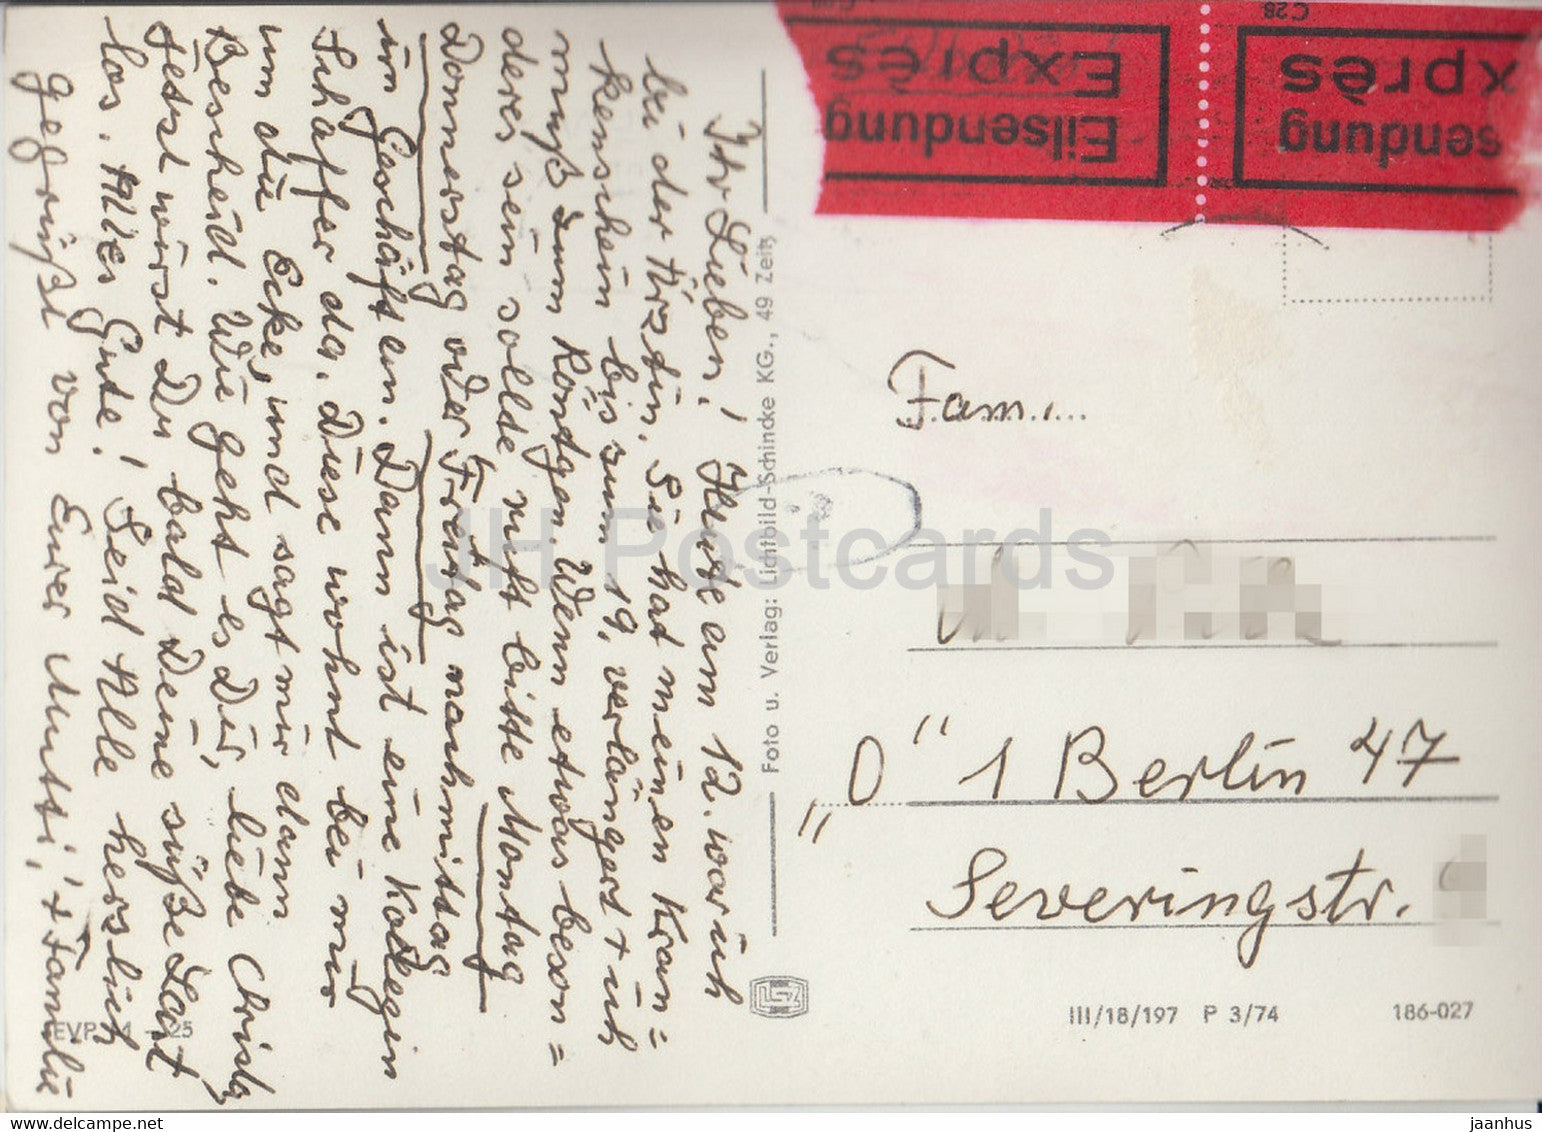 Ihr Lieben! Heute am 12. war ich
bei der Ärztin. Sie hat meinen Kran=
kenschein bis zum 19. verlängert + ich
muß zum Röntgen. Wenn etwas beson=
deres sein sollte ruft bitte Montag
Donnerstag oder Freitag nachmittag
im Geschäft an. Dann ist eine Kollegin
Schaffer da. Diese wohnt bei mir
um die Ecke, und sagt mir dann
Bescheid. Wie geht es Dir, liebe Christa
Jetzt wirst Du bald Deine süße Last
los. Alles Gute! Seid Alle herzlich
gegrüßt von Eurer Mutti, + Familie
EVP 25
Foto u. Verlag: Lichtbild-Schincke KG., 49 Zeitz
C28
Eilsendung
Exprès
sendung
xprès
Fam....
"O" 1 Berlin 47
Severingstr.
III/18/197 P 3/74 186-027
JH Postcards
www.delcampe.net
jaanhus